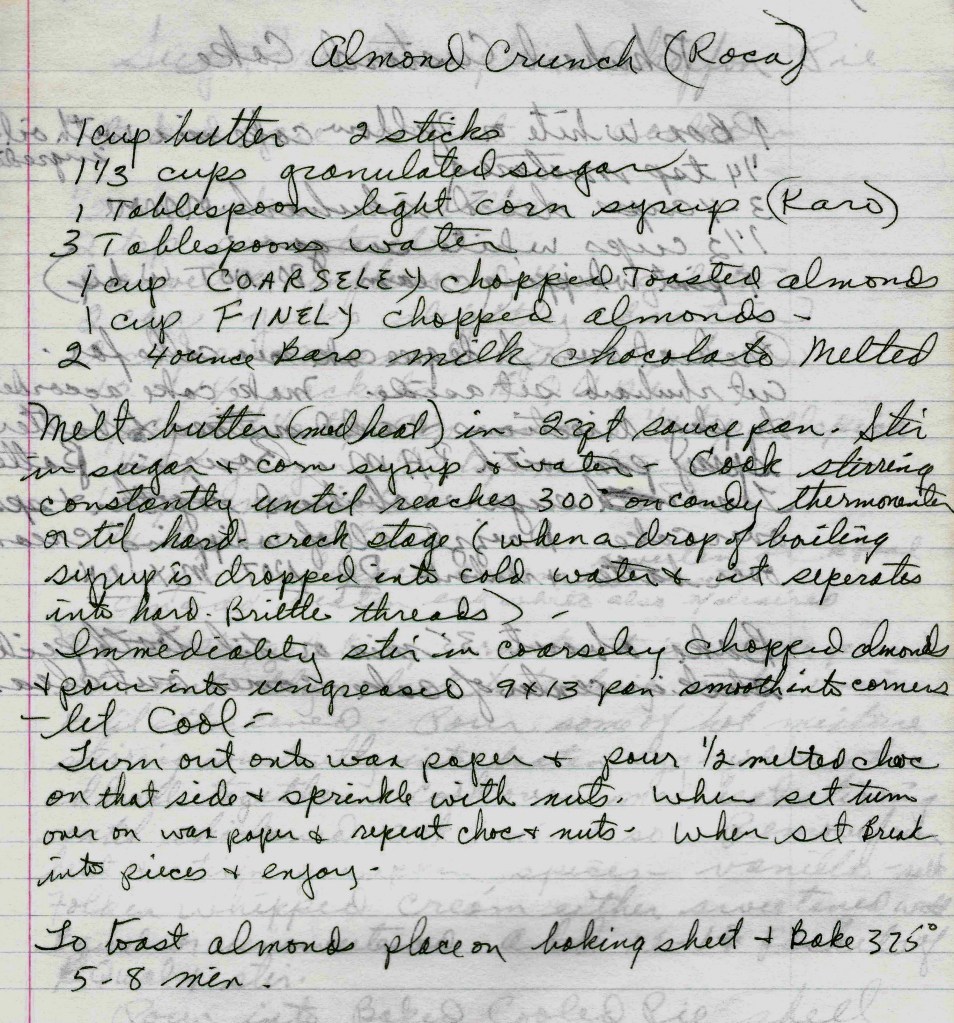 Almond Crunch (Roca)
1 cup butter 2 sticks
1 1/3 cups granulated sugar
1 Tablespoon light corn syrup (Karo)
3 Tablespoons water
1 cup COARSELEY chopped Toasted almonds
1 cup FINELY chopped almonds -
2 4 ounce Bars milk chocolate Melted
Melt butter (med heat) in 2 qt sauce pan. Stir
in sugar & corn syrup & water - Cook stirring
constantly until reaches 300° on candy thermometer
or til hard-crack stage (when a drop of boiling
syrup is dropped into cold water & it seperates
into hard-Brittle threads) -
Immediately stir in coarseley chopped almonds
& pour into ungreased 9x13 pan smooth into corners
- let Cool -
Turn out onto wax paper & pour 1/2 melted choc
on that side & sprinkle with nuts. When set turn
over on wax paper & repeat choc & nuts - When set Break
into pieces & enjoy -
To toast almonds place on baking sheet & Bake 325°
5-8 min.